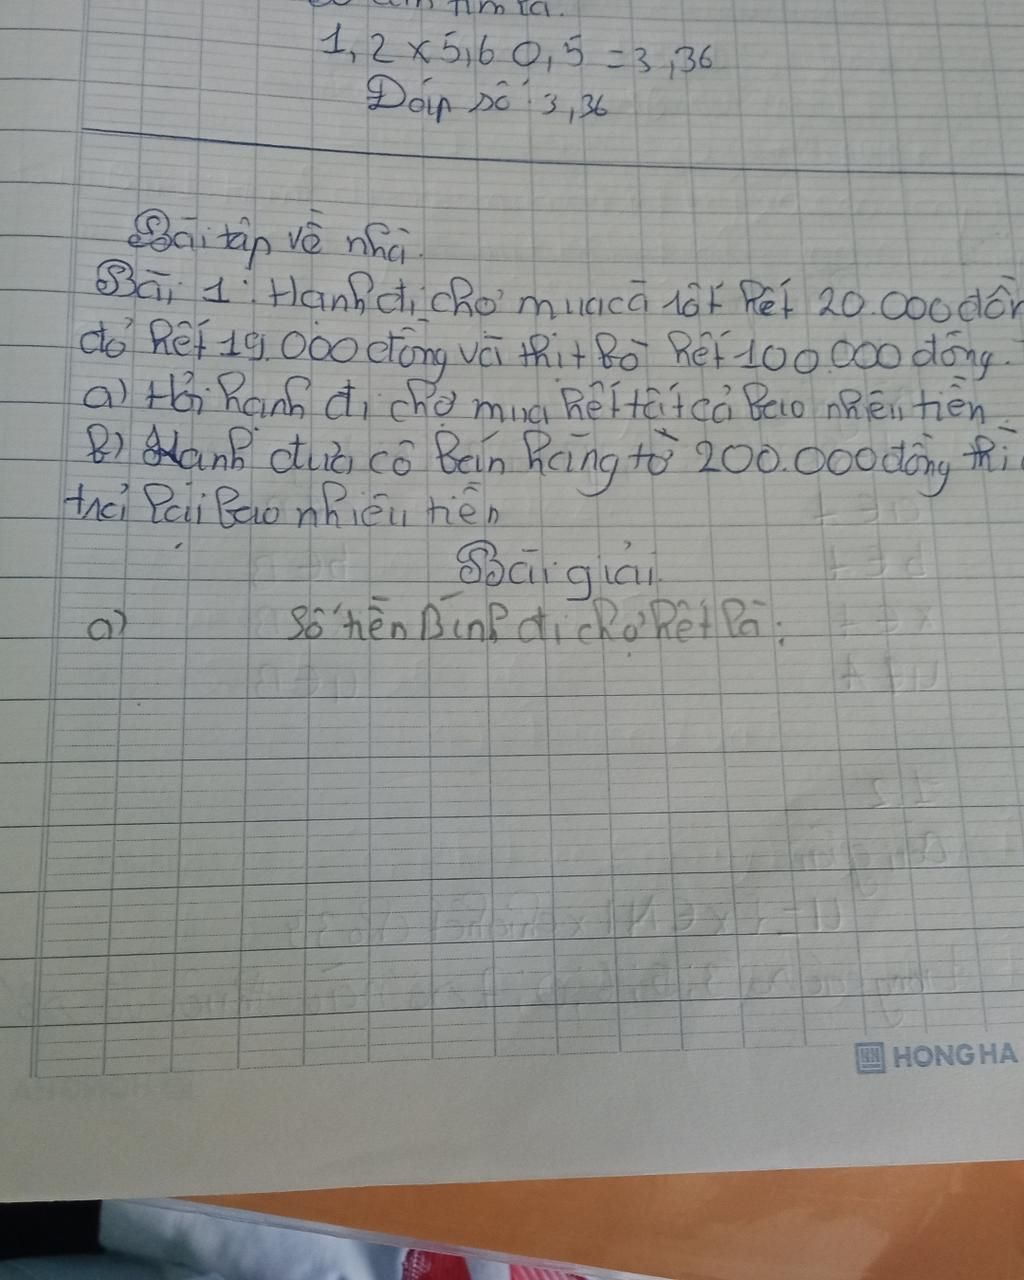 tìm ra.
1,2 x 5,6 0,5 = 3,36
Đáp số: 3,36
Bài tập về nhà.
Bài 1: Hạnh đi chợ mua cà rốt hết 20.000 đồn
đỏ hết 19.000 đồng và thịt bò hết 100.000 đồng.
a) Hỏi hạnh đi chợ mua hết tất cả bao nhiêu tiền.
b) Hạnh đưa cô bán hàng tờ 200.000 đồng thì
trả lại bao nhiêu tiền
Bài giải
a) Số tiền Bình đi chợ hết là:
HONG HA